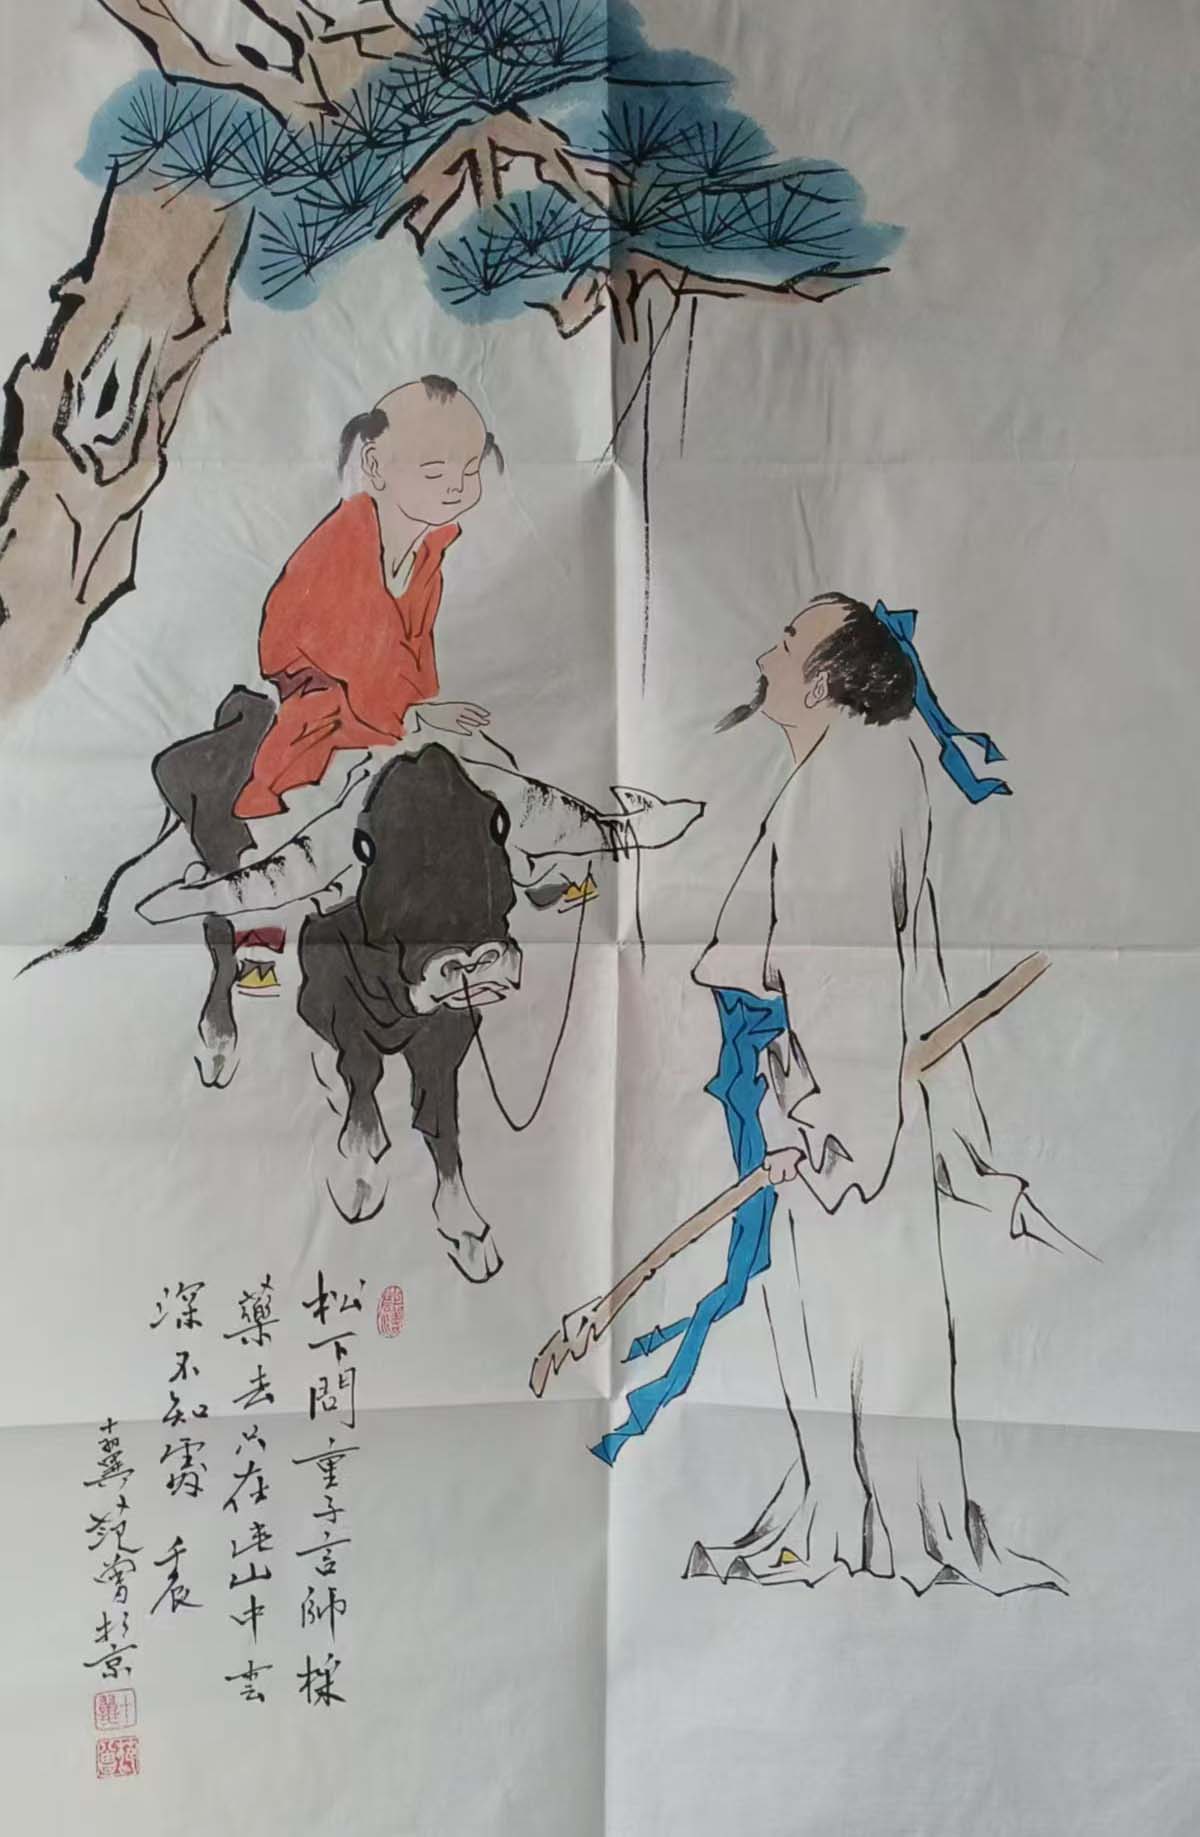 松下問童子言師採
藥去只在此山中雲
深不知處 壬辰
十翼范曾於京
十翼
范曾